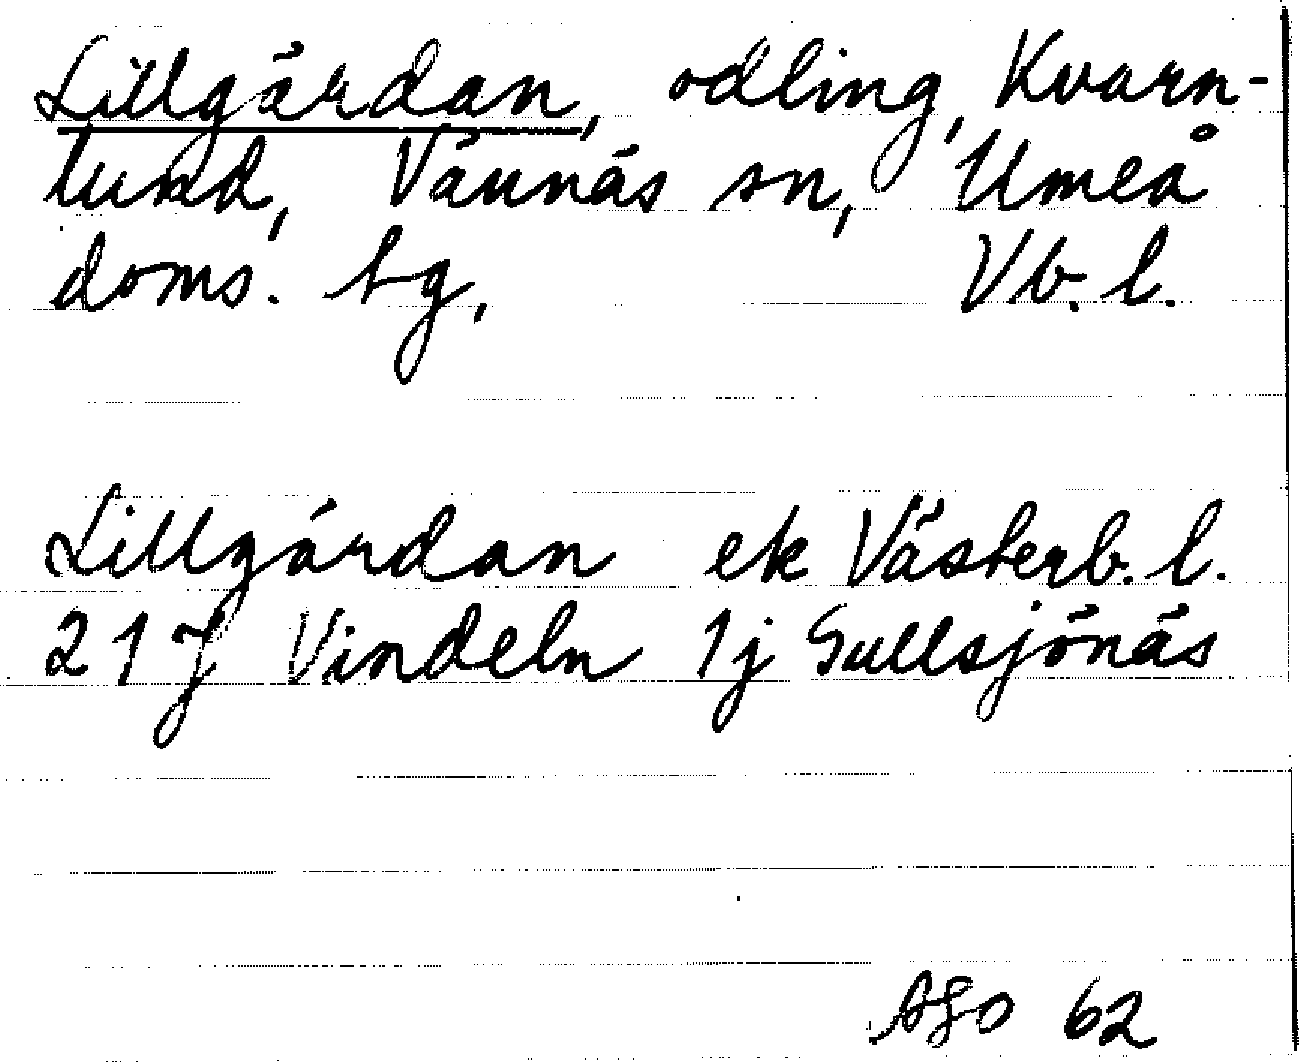 Lillgärdan, odling, Kvarn-
lund, Vännäs sn, Umeå
doms. lg, Vb. l.
Lillgärdan ek Västerb. l.
21 J Vindeln 1j Gullsjönäs
62